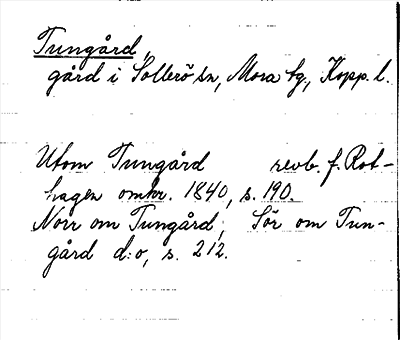 Tungård,
gård i Sollerö sn, Mora tg, Kopp. l.
Utom Tungård revb. f. Rot-
hagen omkr. 1840, s. 190.
Norr om Tungård; Sör om Tun-
gård d:o, s. 212.